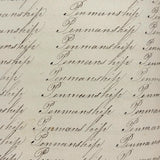 Penmanship Penmanship
Penmanship Penmanship
Penmanship Penmanship
Penmanship Penmanship
Penmanship Penmanship
Penmanship Penmanship
Penmanship Penmanship
Penmanship Penmanship
Penmanship Penmanship